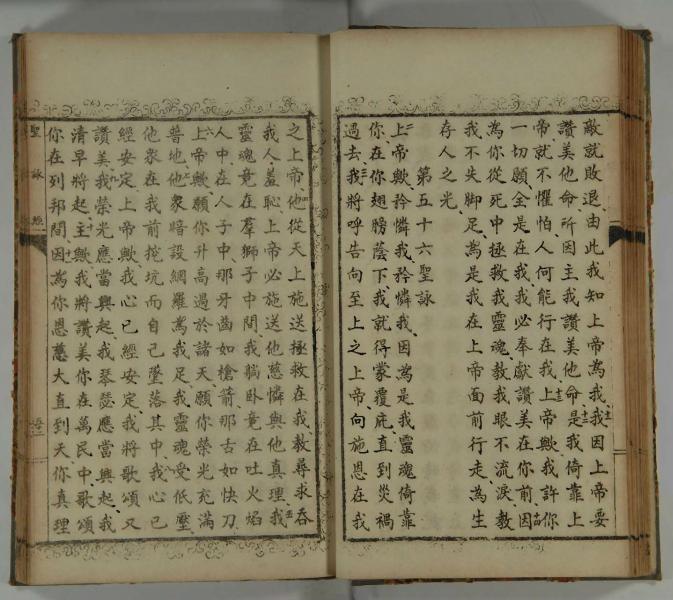 敵就敗退由此我知上帝為我十一我因上帝要
讚美他命所因主我讚美他命十二是我倚靠上
帝就不懼怕人何能行在我十三上帝歟我許你
一切願全是在我我必奉獻讚美在你前十四因
為你從死中拯救我靈魂教我眼不流淚教
我不失脚足為是我在上帝面前行走為生
存人之光
第五十六聖詠
二上帝歟矜憐我矜憐我因為是我靈魂倚靠
你在你翅膀蔭下我就得蒙覆庇直到災禍
過去三我將呼告向至上之上帝向施恩在我
之上帝四他從天上施送拯救在我教尋求吞
我人羞恥上帝必施送他慈憐與他真理五我
靈魂竟在羣獅子中間我躺卧竟在吐火焰
人中在人子中那牙齒如槍箭那舌如快刀
六上帝歟願你升高過於諸天願你榮光充滿
普地七他衆暗設網羅為我足我靈魂受低壓
他衆在我前挖坑而自己墜落其中八我心已
經安定上帝歟我心已經安定我將歌頌又
讚美九我榮光應當興起我琴瑟應當興起我
清早將起十主歟我將讚美你在萬民中歌頌
你在列邦間十一因為你恩慈大直到天你真理
聖詠經